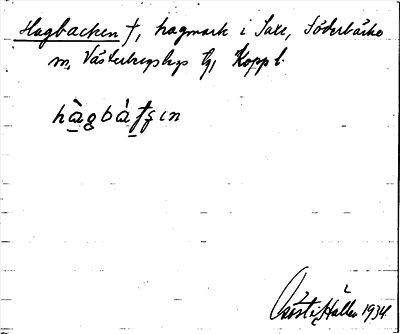 Hagbacken †, hagmark i Saxe, Söderbärke
sn, Västerbergslags tg, Koppb.
hàgbátʃɛɪn
Gösta Hallén 1934.